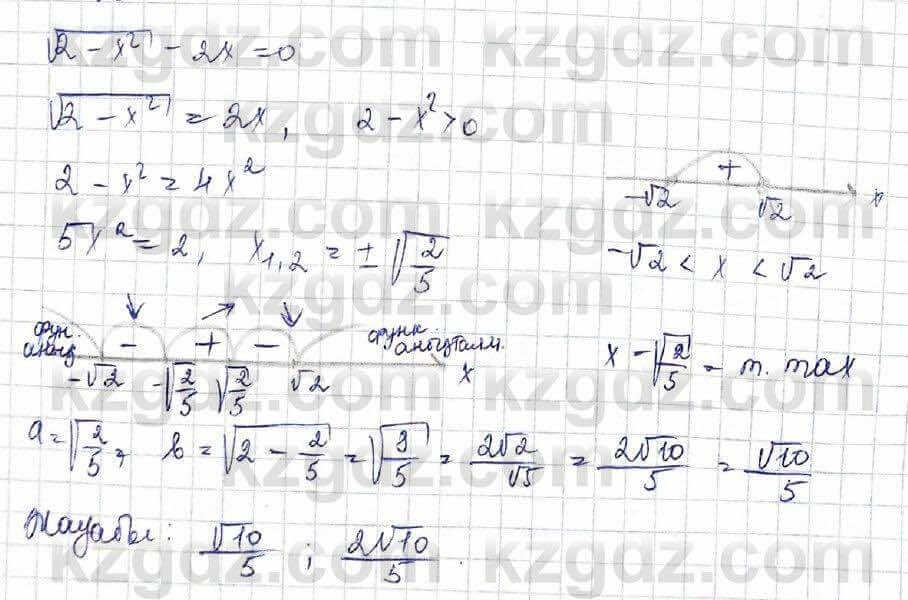 √(2 - x²) - 2x = 0
√(2 - x²) = 2x, 2 - x² > 0
2 - x² = 4x²
+
-√2 √2 x
5x² = 2, x₁,₂ = ± √(2/5)
-√2 < x < √2
↓ ↗ ↓
фун. - + - функ.
аныңталм
-√2 -√(2/5) √(2/5) √2 x
x - √(2/5) - т. max
a = √(2/5), b = √(2 - 2/5) = √(8/5) = 2√2/√5 = 2√10/5 = √10/5
Жауабы: √10/5 ; 2√10/5.
kzgdz.com kzgdz.com
kzgdz.com kzgdz.com
kzgdz.com kzgdz.com
kzgdz.com kzgdz.com
kzgdz.com kzgdz.com
kzgdz.com kzgdz.com